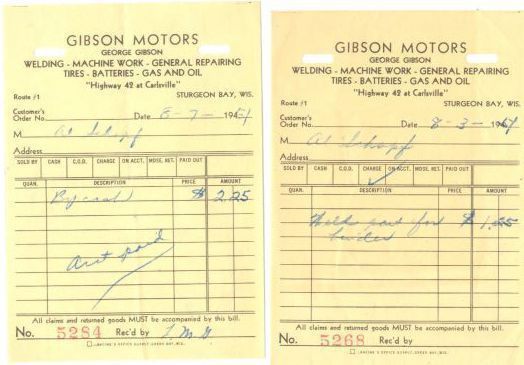 GIBSON MOTORS
GEORGE GIBSON
WELDING - MACHINE WORK - GENERAL REPAIRING
TIRES - BATTERIES - GAS AND OIL
"Highway 42 at Carlsville"
Route #1 STURGEON BAY, WIS.
Customer's
Order No. Date 8-7-194
M Al Schopf
Address
SOLD BY CASH C.O.D. CHARGE ON ACCT. MDSE. RET. PAID OUT
QUAN. DESCRIPTION PRICE AMOUNT
By cash $ 2.25
Act paid
All claims and returned goods MUST be accompanied by this bill.
No. 5284 Rec'd by L.M.G
GIBSON MOTORS
GEORGE GIBSON
WELDING - MACHINE WORK - GENERAL REPAIRING
TIRES - BATTERIES - GAS AND OIL
"Highway 42 at Carlsville"
Route #1 STURGEON BAY, WIS.
Customer's
Order No. Date 8-3-19
M Al Schopf
Address
SOLD BY CASH C.O.D. CHARGE ON ACCT. MDSE. RET. PAID OUT
QUAN. DESCRIPTION PRICE AMOUNT
Weld part for $ 1.25
binder
All claims and returned goods MUST be accompanied by this bill.
No. 5268 Rec'd by